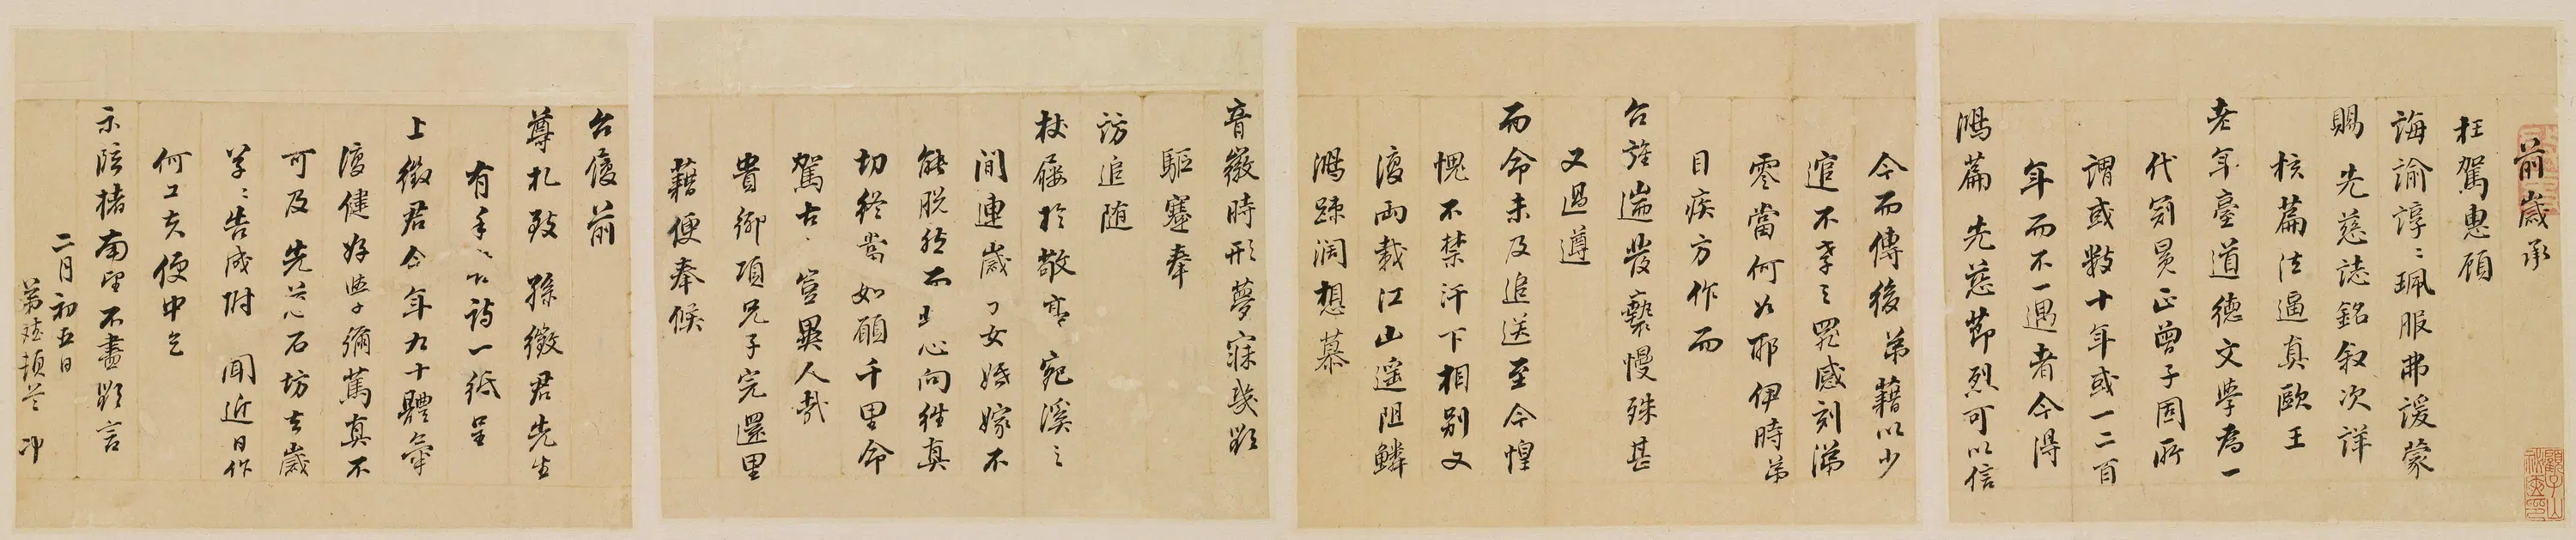 前歲承
枉駕惠顧
誨諭諄〻珮服弗諼蒙
賜先慈誌銘叙次詳
核篇法逼真歐王
老年臺道德文學為一
代宗匠曾子固所
謂或數十年或一二百
年而不一遇者今得
鴻篇先慈節烈可以信
今而傳後弟藉以少
逭不孝之罪感刻涕
零當何如耶伊時弟
目疾方作而
台旌遄發褻慢殊甚
又過遵
而命未及追送至今惶
愧不禁汗下相別又
復兩載江山遥阻鱗
鴻踈濶想慕
音徽時形夢寐幾欲
驅蹇奉
訪追随
杖屨於敬亭宛溪之
間連歲以女婚嫁不
能脱然而此心向往真
切終當如願千里命
駕古豈異人哉
貴鄉項兄子完還里
藉便奉候
台履前
尊札致孫徵君先生
有手詩一紙呈
上徵君今年九十體氣
復健好學彌篤真不
可及先慈石坊去歲
草〻告成附聞近日作
何工夫便中乞
示臨楮南望不盡欲言
二月初五日
弟頓首冲